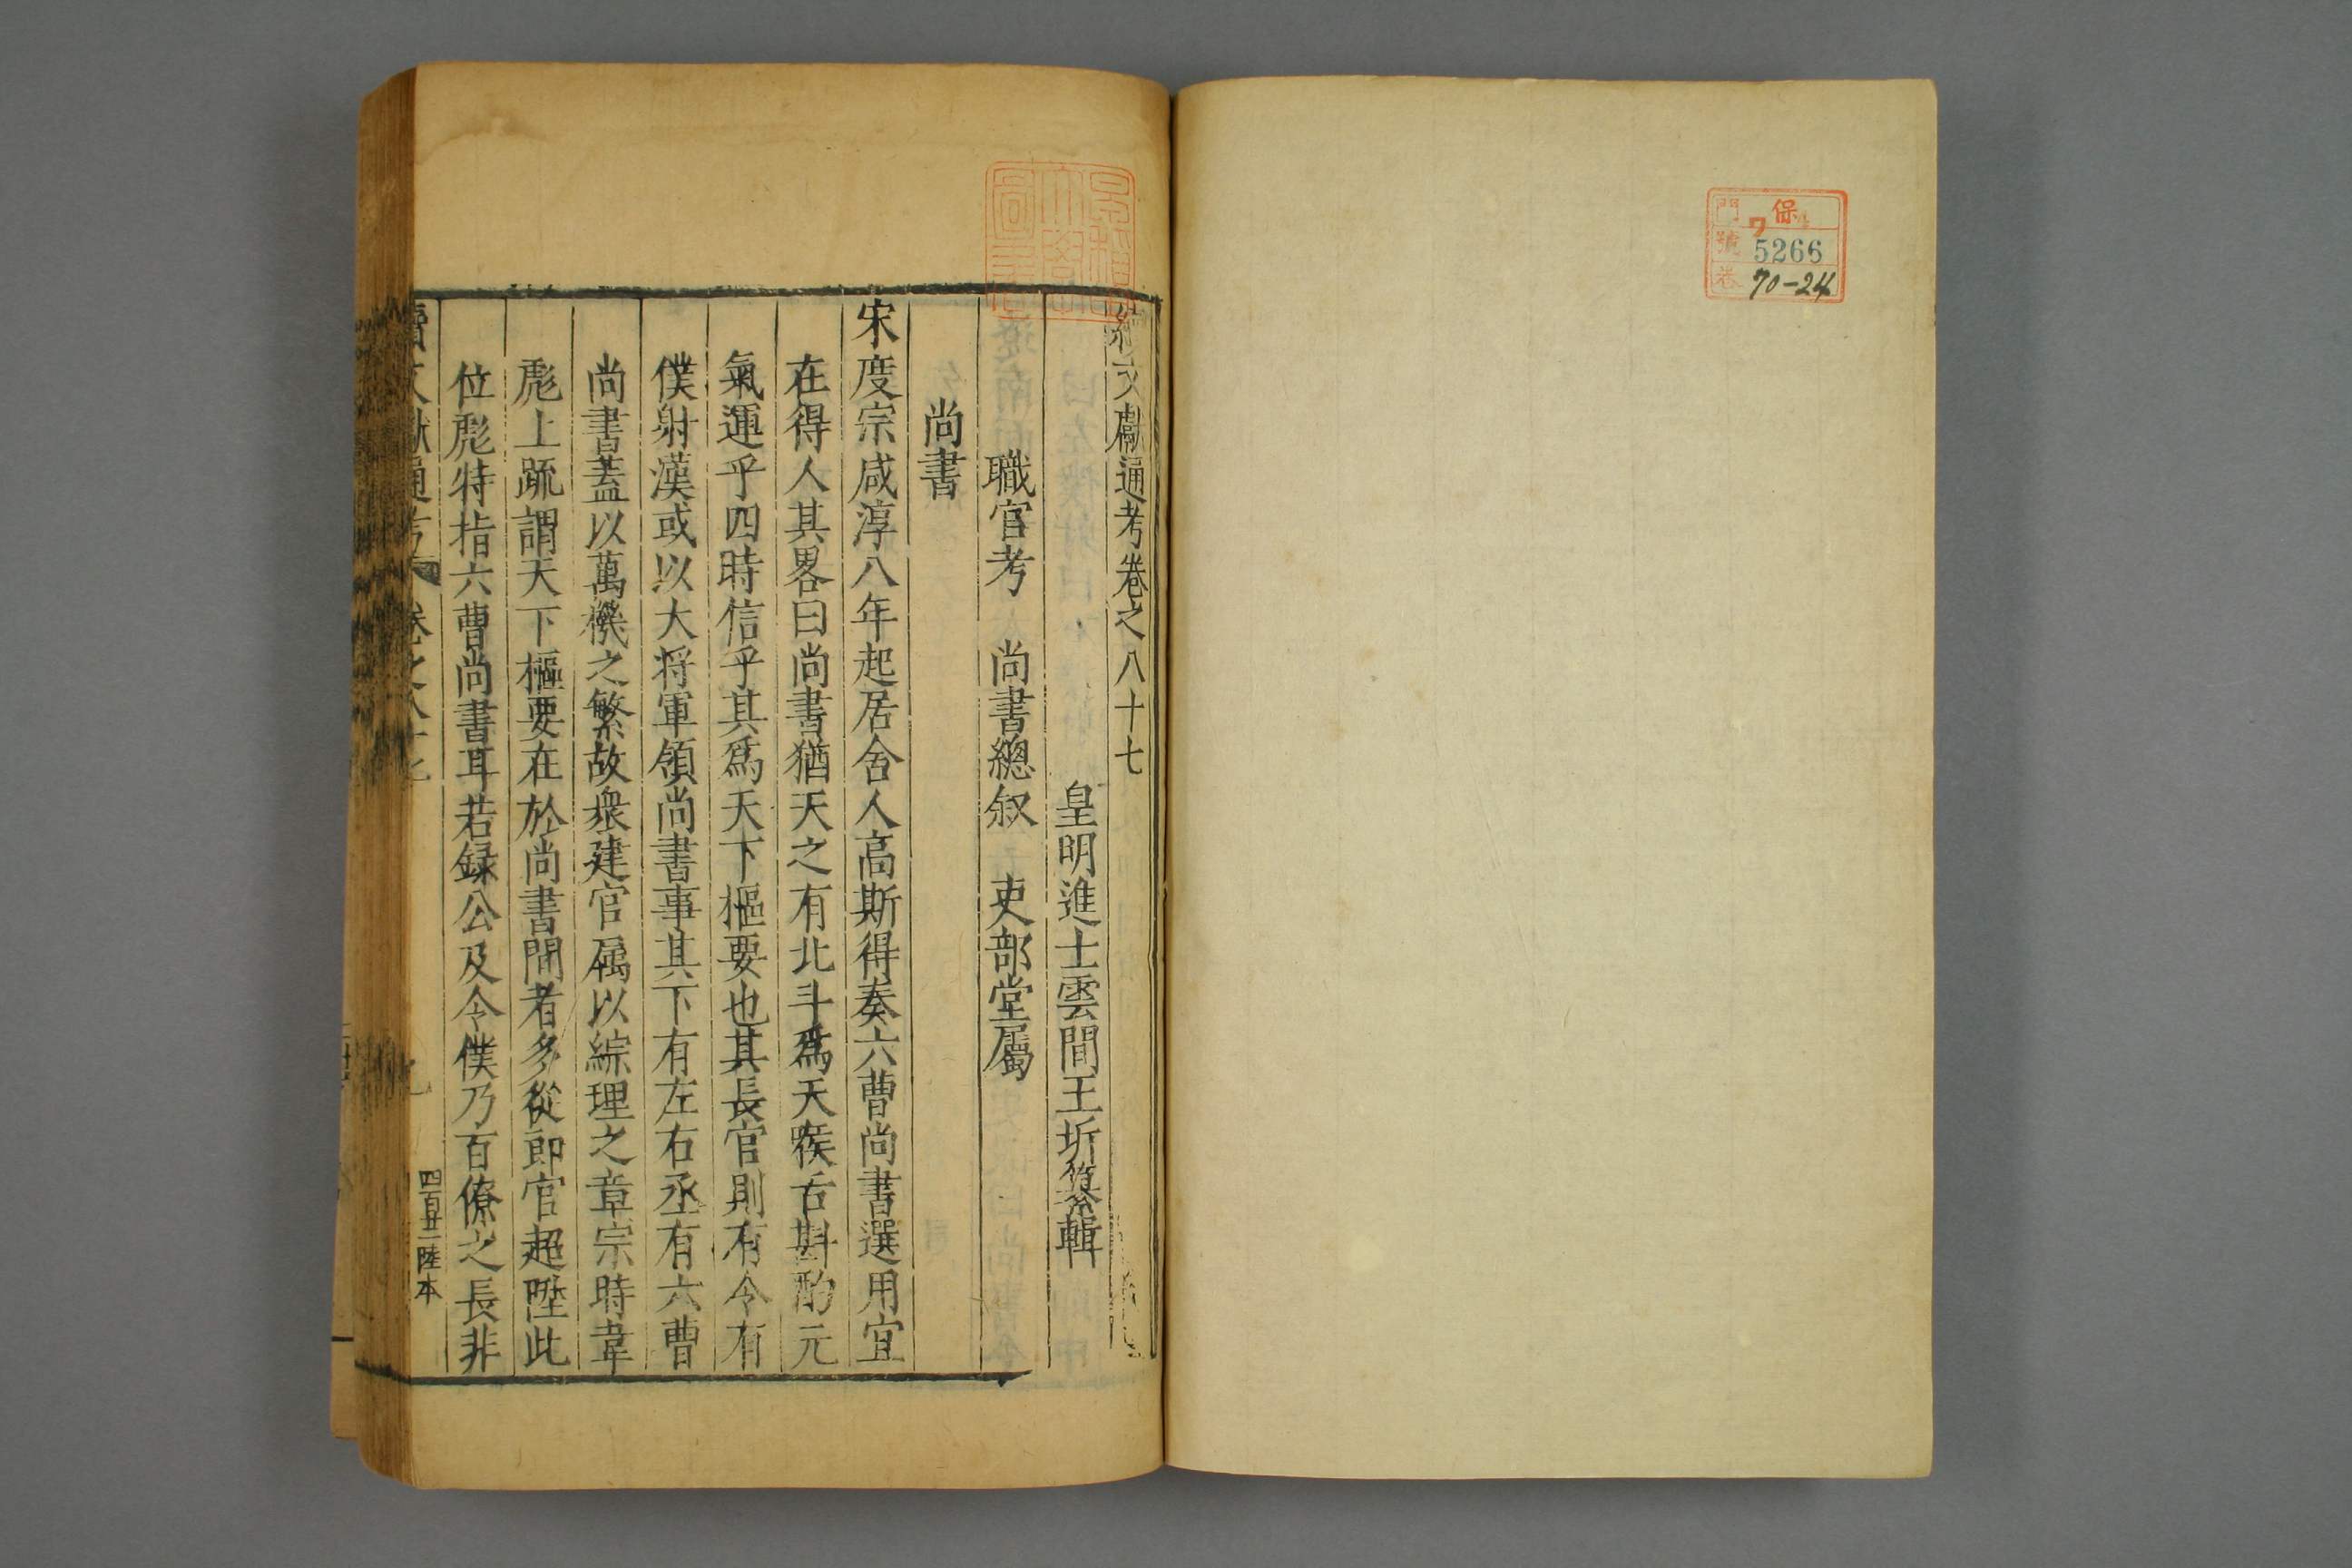 門 保 ワ
號 5266
卷 70-24
續文獻通考卷之八十七
皇明進士雲間王圻纂輯
職官考 尚書總叙 吏部堂屬
尚書
宋度宗咸淳八年起居舍人高斯得奏六曹尚書選用宜
在得人其畧曰尚書猶天之有北斗爲天喉舌斟酌元
氣運乎四時信乎其爲天下樞要也其長官則有令有
僕射漢或以大将軍領尚書事其下有左右丞有六曹
尚書蓋以萬機之繁故衆建官属以綜理之章宗時韋
彪上疏謂天下樞要在於尚書間者多從郎官超陞此
位彪特指六曹尚書耳若録公及令僕乃百僚之長非
續文獻通考 卷之八十七
四百廿二 陸本